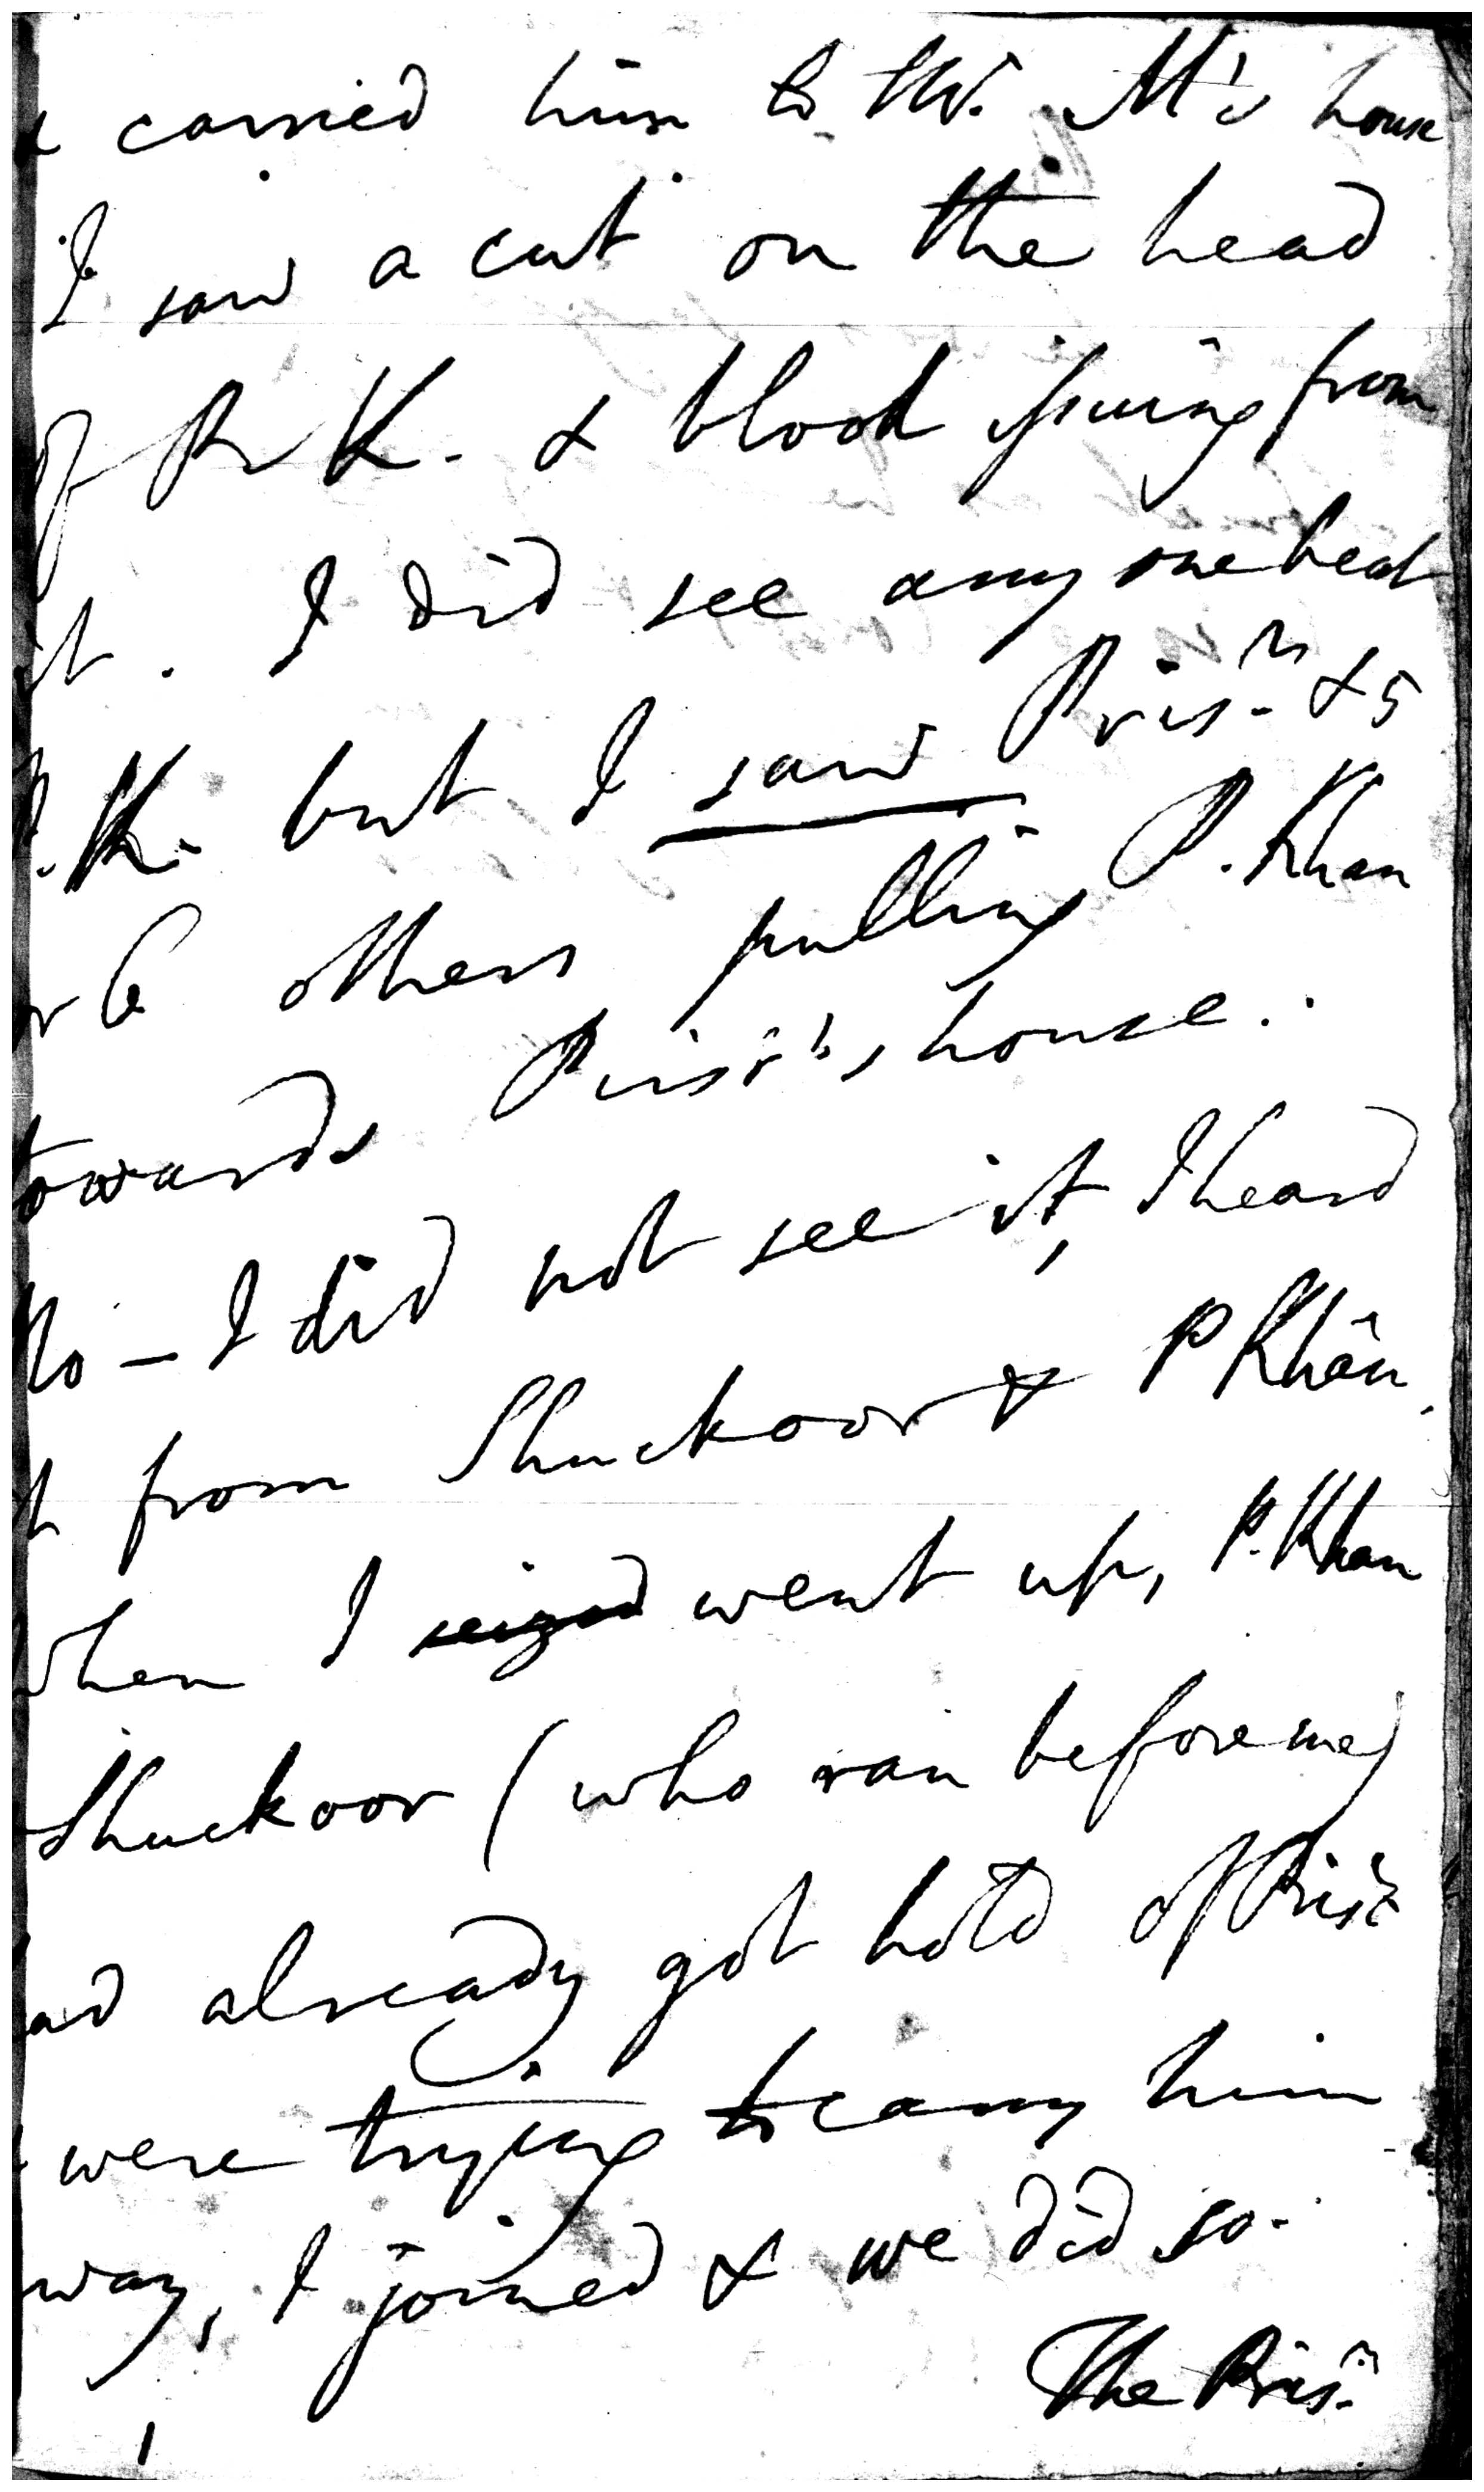 & carried him to Mr. M's house
I saw a cut on the head
of P. K. & blood issuing from
it. I did see any one beat
P. K. but I saw Prisr. & 5
or 6 others pulling P. Khan
towards Prisr's house.
No - I did not see it, I heard
it from Shuckoor & P Khan,
when I seized went up, P. Khan
Shuckoor (who ran before me)
had already got hold of Prisr.
& were trying to carry him
away, I joined & we did so.
The Prisr.